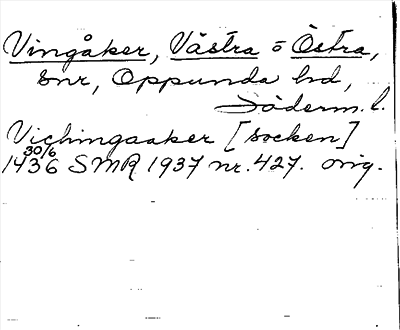 Vingåker, Västra o Östra,
snr, Oppunda hd,
Söderm. l.
Vichingaaker [socken]
30/6
1436 SMR 1937 nr. 427. orig.